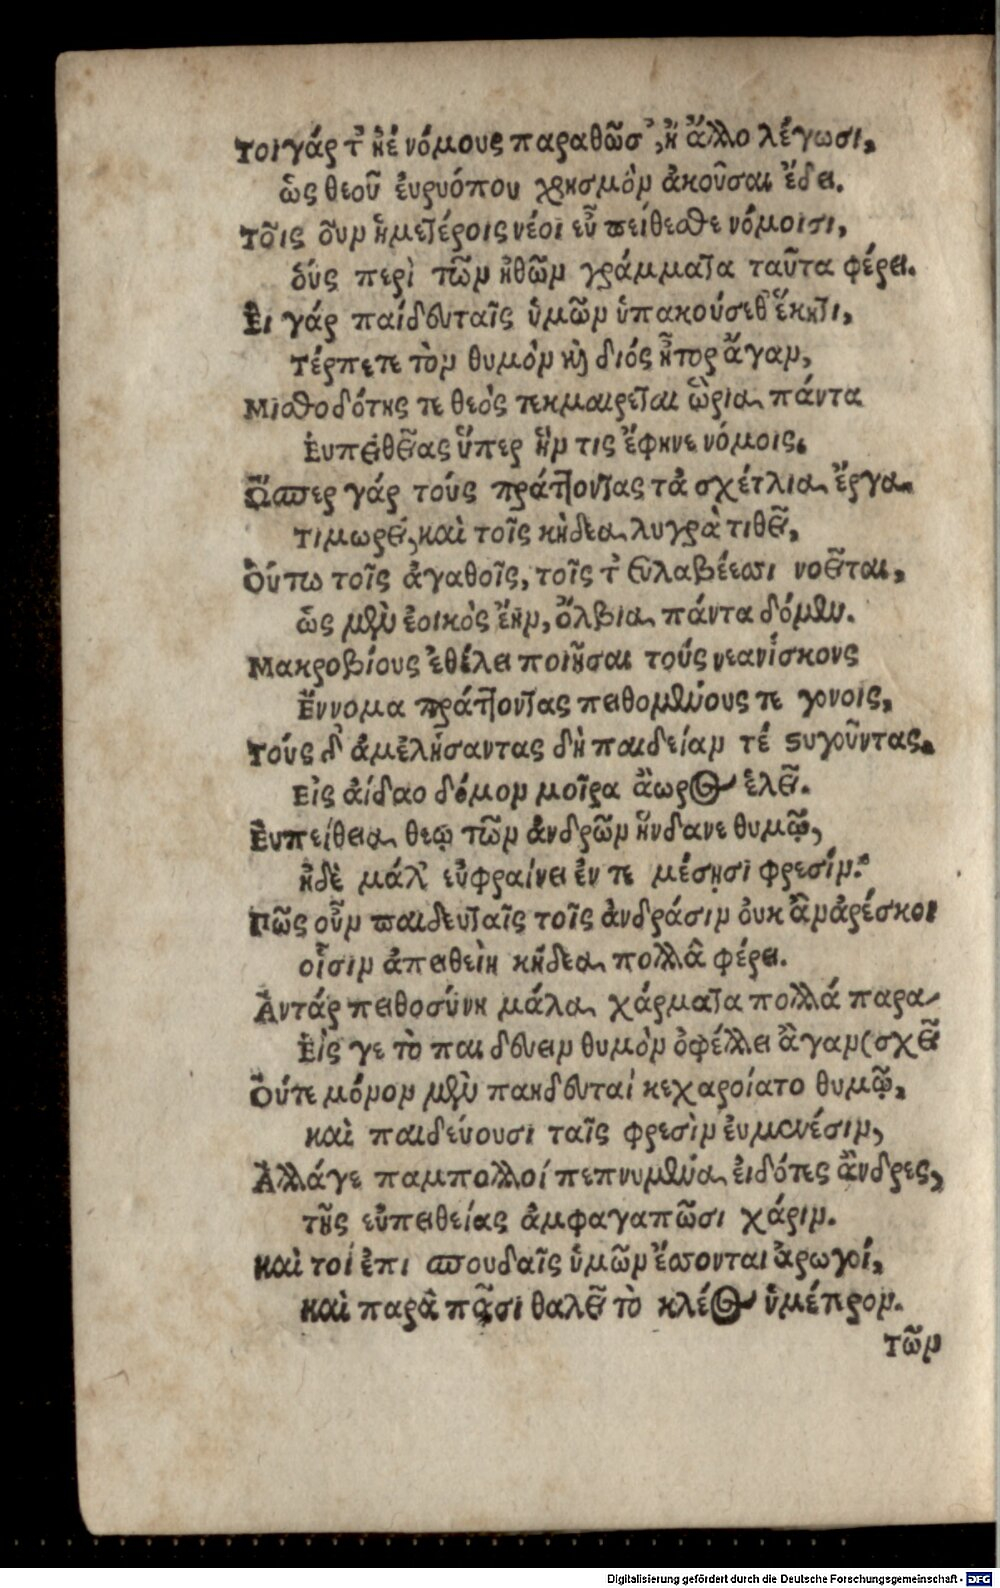 Τοι γάρ τ' ἠέ νόμους παραθῶσ', ἢ ἄλλο λέγωσι,
ὡς θεοῦ ἐυρυόπου χρησμὸν ἀκοῦσαι ἔδει.
Τοῖς οὖν ἡμετέροις νέοι εὖ πείθεσθε νόμοισι,
δύς περὶ τῶν ἠθῶν γράμματα ταῦτα φέρει.
Εἰ γάρ παίδευταῖς ὑμῶν ὑπακούσεθ' ἕκητι,
τέρπετε τὸν θυμὸν καὶ διός ἦτορ ἄγαν,
Μισθοδότης τε θεὸς τεκμαιρεῖται ὥρια πάντα
Ἐυπειθείας ὕπερ ἥν τις ἔφηνε νόμοις.
Ὥσπερ γάρ τοὺς πράττοντας τὰ σχέτλια ἔργα
τιμωρεῖ, καὶ τοῖς κήδεα λυγρὰ τιθεῖ,
Οὕτω τοῖς ἀγαθοῖς, τοῖς τ' εὐλαβέεσσι νοεῖται,
ὡς μὲν ἐοικὸς ἔην, ὄλβια πάντα δόμεν.
Μακροβίους ἐθέλει ποιῆσαι τοὺς νεανίσκους
Ἔννομα πράττοντας πειθομένους τε γονοῖς,
Τούς δ' ἀμελήσαντας δὴ παιδείαν τέ στυγοῦντας,
Εἰς ἀίδαο δόμον μοῖρα ἄωρος ἑλεῖ.
Ἐυπείθεια θεῷ τῶν ἀνδρῶν ἥνδανε θυμῷ,
ἠδὲ μάλ' εὐφραίνει ἐν τε μέσῃσι φρεσίν.
Πῶς οὖν παιδευταῖς τοῖς ἀνδράσιν ὀυκ ἂν ἀρέσκοι
οἷσιν ἀπειθείη κήδεα πολλὰ φέρει.
Αὐτάρ πειθοσύνη μάλα χάρματα πολλά παρα-
Εἰς γε τὸ παιδεύειν θυμὸν ὀφέλλει ἄγαν (σχεῖ
Οὔτε μόνον μὲν παιδευταί κεχαροίατο θυμῷ,
καὶ παιδεύουσι ταῖς φρεσὶν ἐυμενέσιν,
Ἀλλάγε παμπολλοί πεπνυμένα εἰδότες ἄνδρες,
τῆς εὐπειθείας ἀμφαγαπῶσι χάριν.
Καὶ τοί ἐπι σπουδαῖς ὑμῶν ἔσονται ἀρωγοί,
καὶ παρὰ πᾶσι θαλεῖ τὸ κλέος ὑμέτερον.
τῶν
Digitalisierung gefördert durch die Deutsche Forschungsgemeinschaft - DFG